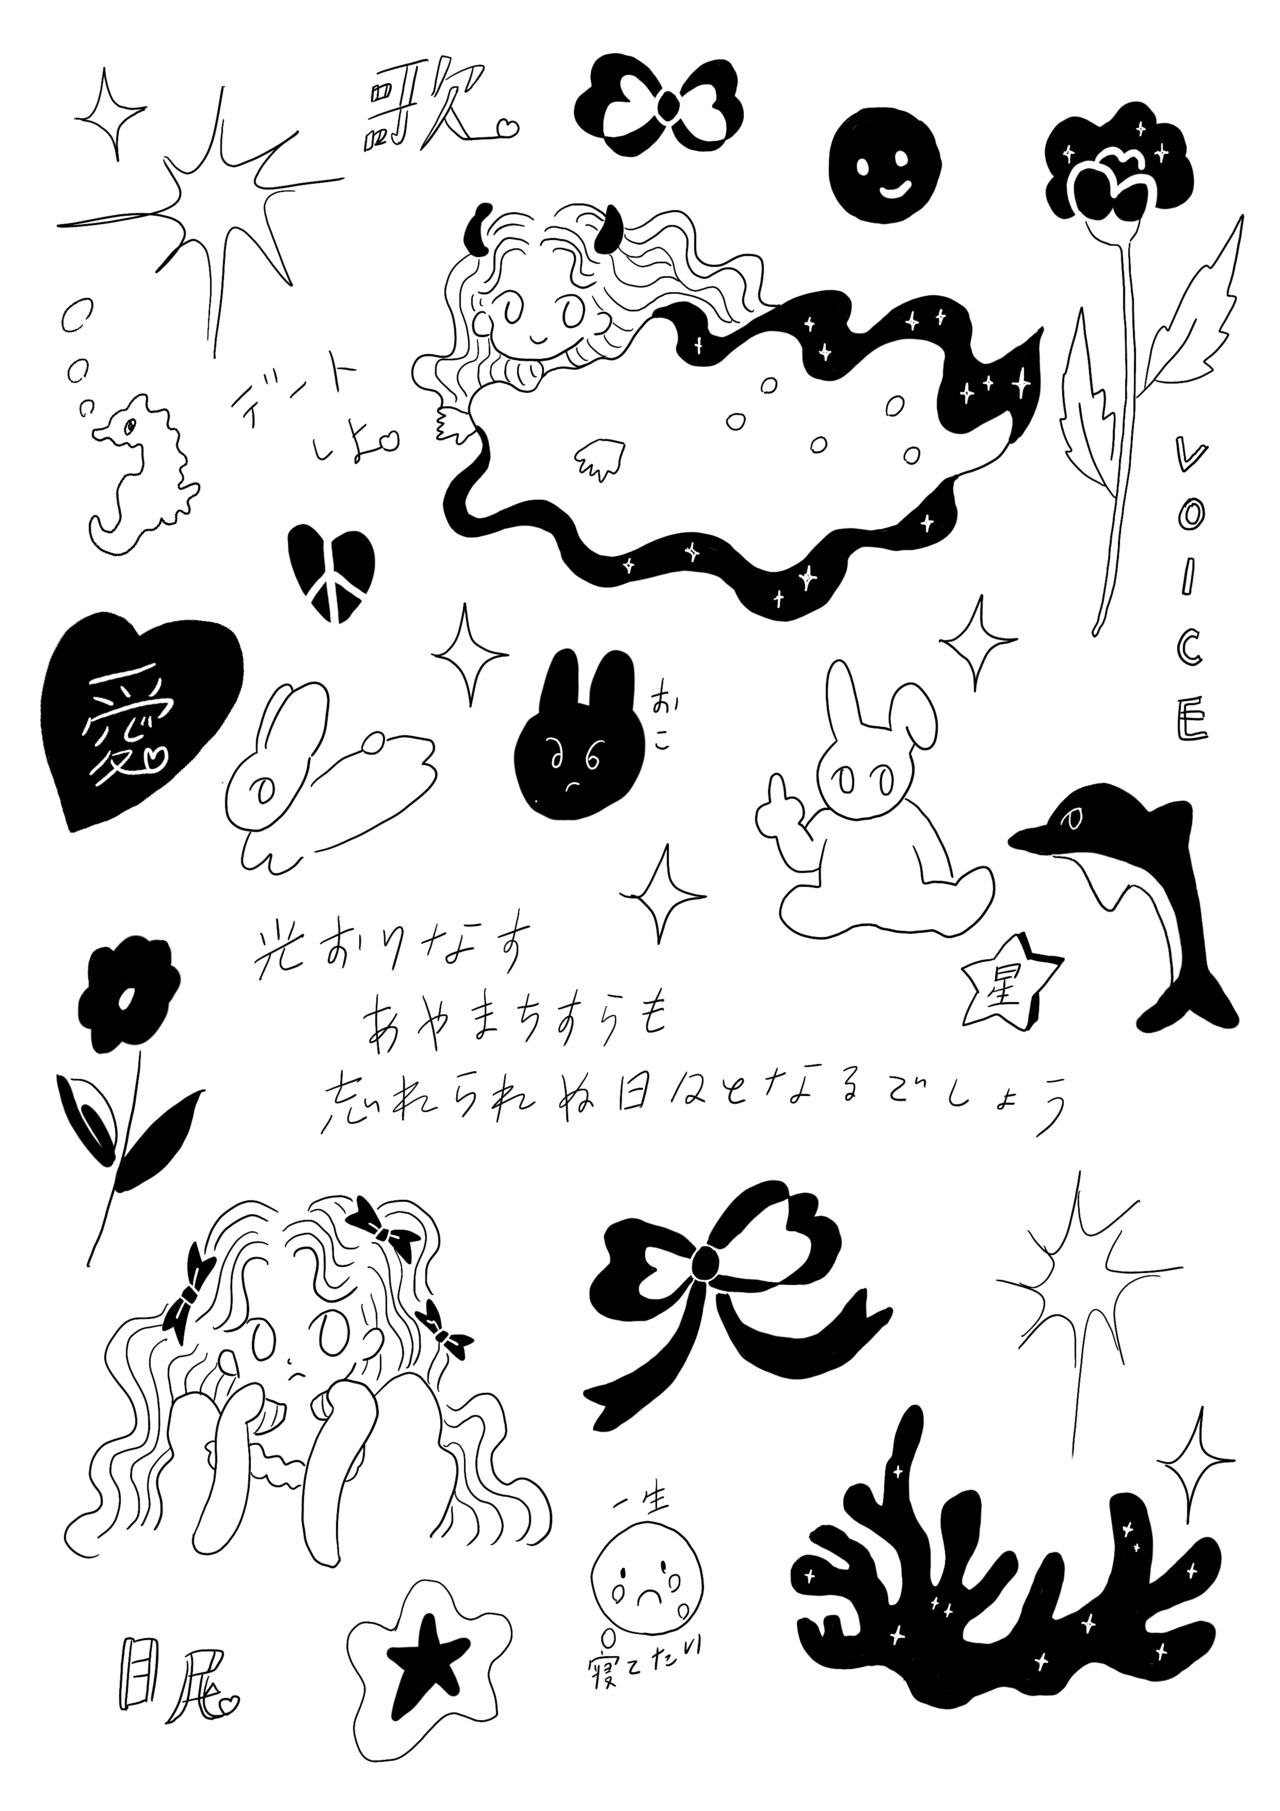 歌
デート
しよ
VOICE
愛
おこ
光おりなす
あやまちすらも
忘れられぬ日々となるでしょう
星
一生
寝てたい
目尾